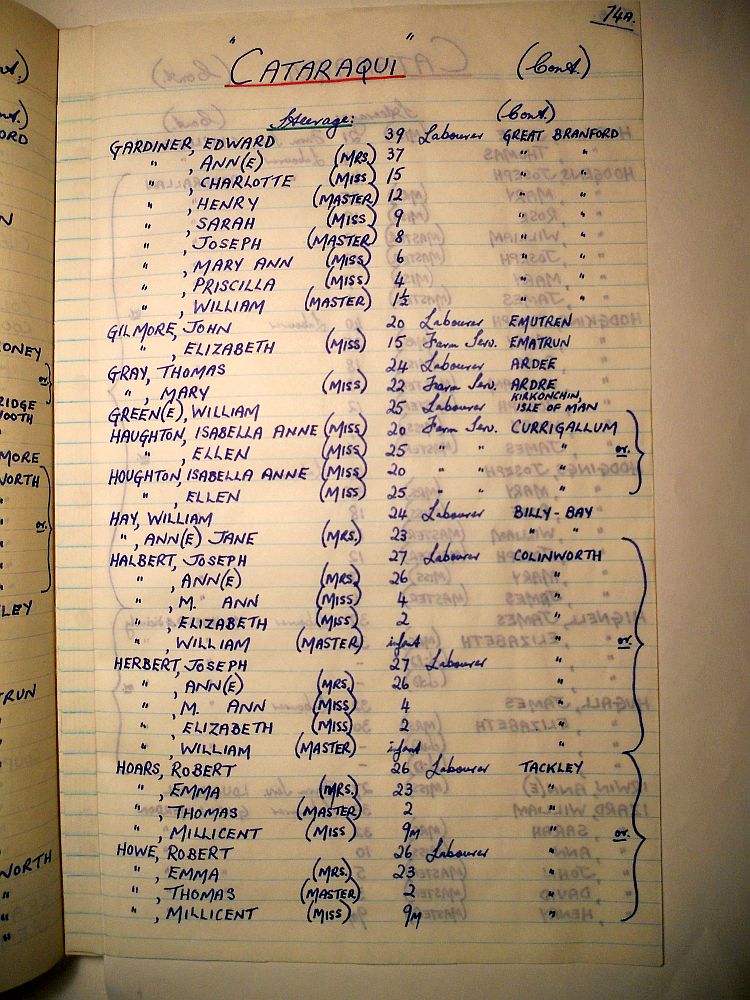 74A.
"CATARAQUI" (Cont.)
Steerage: (Cont.)
GARDINER, EDWARD 39 Labourer GREAT BRANFORD
" , ANN(E) (MRS.) 37 " "
" , CHARLOTTE (MISS) 15 " "
" , HENRY (MASTER) 12 " "
" , SARAH (MISS) 9 " "
" , JOSEPH (MASTER) 8 " "
" , MARY ANN (MISS) 6 " "
" , PRISCILLA (MISS) 4 " "
" , WILLIAM (MASTER) 1½ " "
GILMORE, JOHN 20 Labourer EMUTREN
" , ELIZABETH (MISS) 15 Farm Serv. EMATRUN
GRAY, THOMAS 24 Labourer ARDEE
" , MARY (MISS) 22 Farm Serv. ARDRE
GREEN(E), WILLIAM 25 Labourer KIRKONCHIN, ISLE OF MAN
HAUGHTON, ISABELLA ANNE (MISS) 20 Farm Serv. CURRIGALLUM
" , ELLEN (MISS) 25 " " " or.
HOUGHTON, ISABELLA ANNE (MISS) 20 " " "
" , ELLEN (MISS) 25 " " "
HAY, WILLIAM 24 Labourer BILLY-BAY
" , ANN(E) JANE (MRS.) 23 " "
HALBERT, JOSEPH 27 Labourer COLINWORTH
" , ANN(E) (MRS.) 26 "
" , M. ANN (MISS) 4 "
" , ELIZABETH (MISS) 2 "
" , WILLIAM (MASTER) infant " or.
HERBERT, JOSEPH 27 Labourer "
" , ANN(E) (MRS.) 26 "
" , M. ANN (MISS) 4 "
" , ELIZABETH (MISS) 2 "
" , WILLIAM (MASTER) infant "
HOARS, ROBERT 26 Labourer TACKLEY
" , EMMA (MRS.) 23 "
" , THOMAS (MASTER) 2 "
" , MILLICENT (MISS) 9M " or.
HOWE, ROBERT 26 Labourer "
" , EMMA (MRS.) 23 "
" , THOMAS (MASTER) 2 "
" , MILLICENT (MISS) 9M "